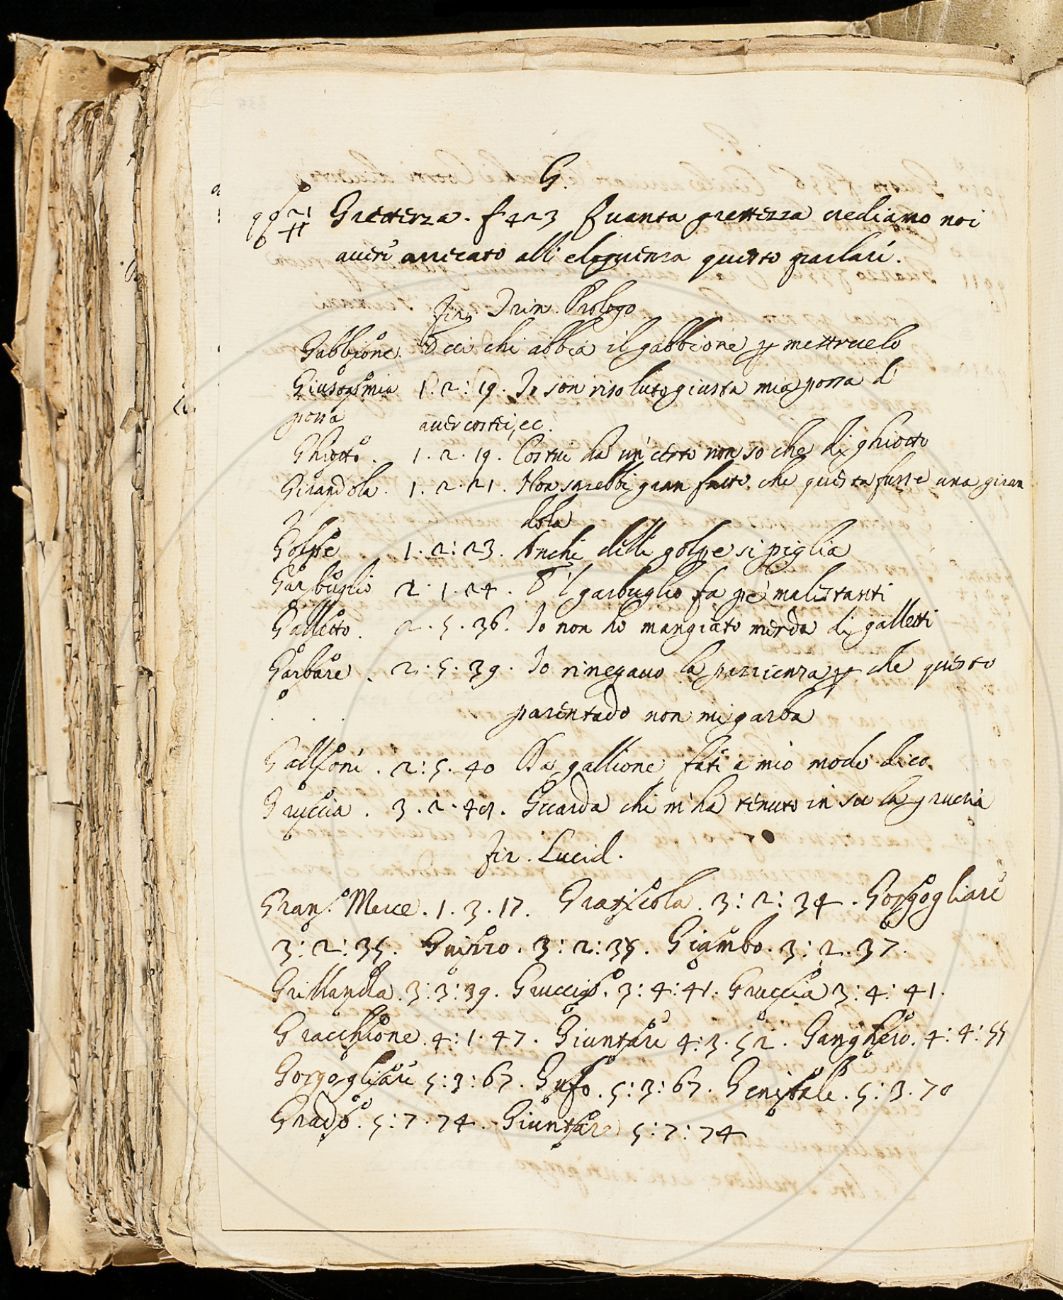 G.
Grettezza. f 423 Quanta grettezza crediamo noi
avere arrecato all' eloquenza questo parlare.
Fir. Trin. Prologo
Gabbione. Ecci chi abbia il gabbione p mettruelo
Giusta mia 1. 2: 19. Io son risoluto giusta mia possa d
possa aver costei, ec.
Ghiotto. 1. 2. 19. Costui ha un certo non so che di ghiotto
Girandola. 1. 2. 21. Non sarebbe gran fatto, che questa fusse una giran
dola
Golpe 1. 2: 23. Anche delle golpe si piglia
Garbuglio 2. 1. 24. E 'l garbuglio fa pe' malistanti
Galletto. 2. 5. 36. Io non ho mangiato merda di galletti
Garbare. 2: 5: 39. Io rinegavo la pazzienza p che questo
parentado non mi garba
Gallione. 2: 5. 40 Da gallione, fate a mio modo dico.
Gruccia. 3. 2. 49. Guarda chi m'ha tenuto in su la gruccia
Fir. Lucid.
Gran. Merce. 1. 3. 17. Graticola. 3: 2: 34. Gorgogliare
3: 2: 35. 3: 2: 35. Giambo. 3: 2. 37.
Grillanda. 3: 3: 39. 3: 4: 41. Gruccia 3: 4: 41.
Gracchione. 4: 1. 47. Giuntare 4: 3. 52. Ganghero. 4: 4: 55
Gorgogliare 5: 3: 67. Gufo. 5: 3: 67. Genitale. 5: 3. 70
Grado. 5: 7. 74. Giuntare 5: 7: 74